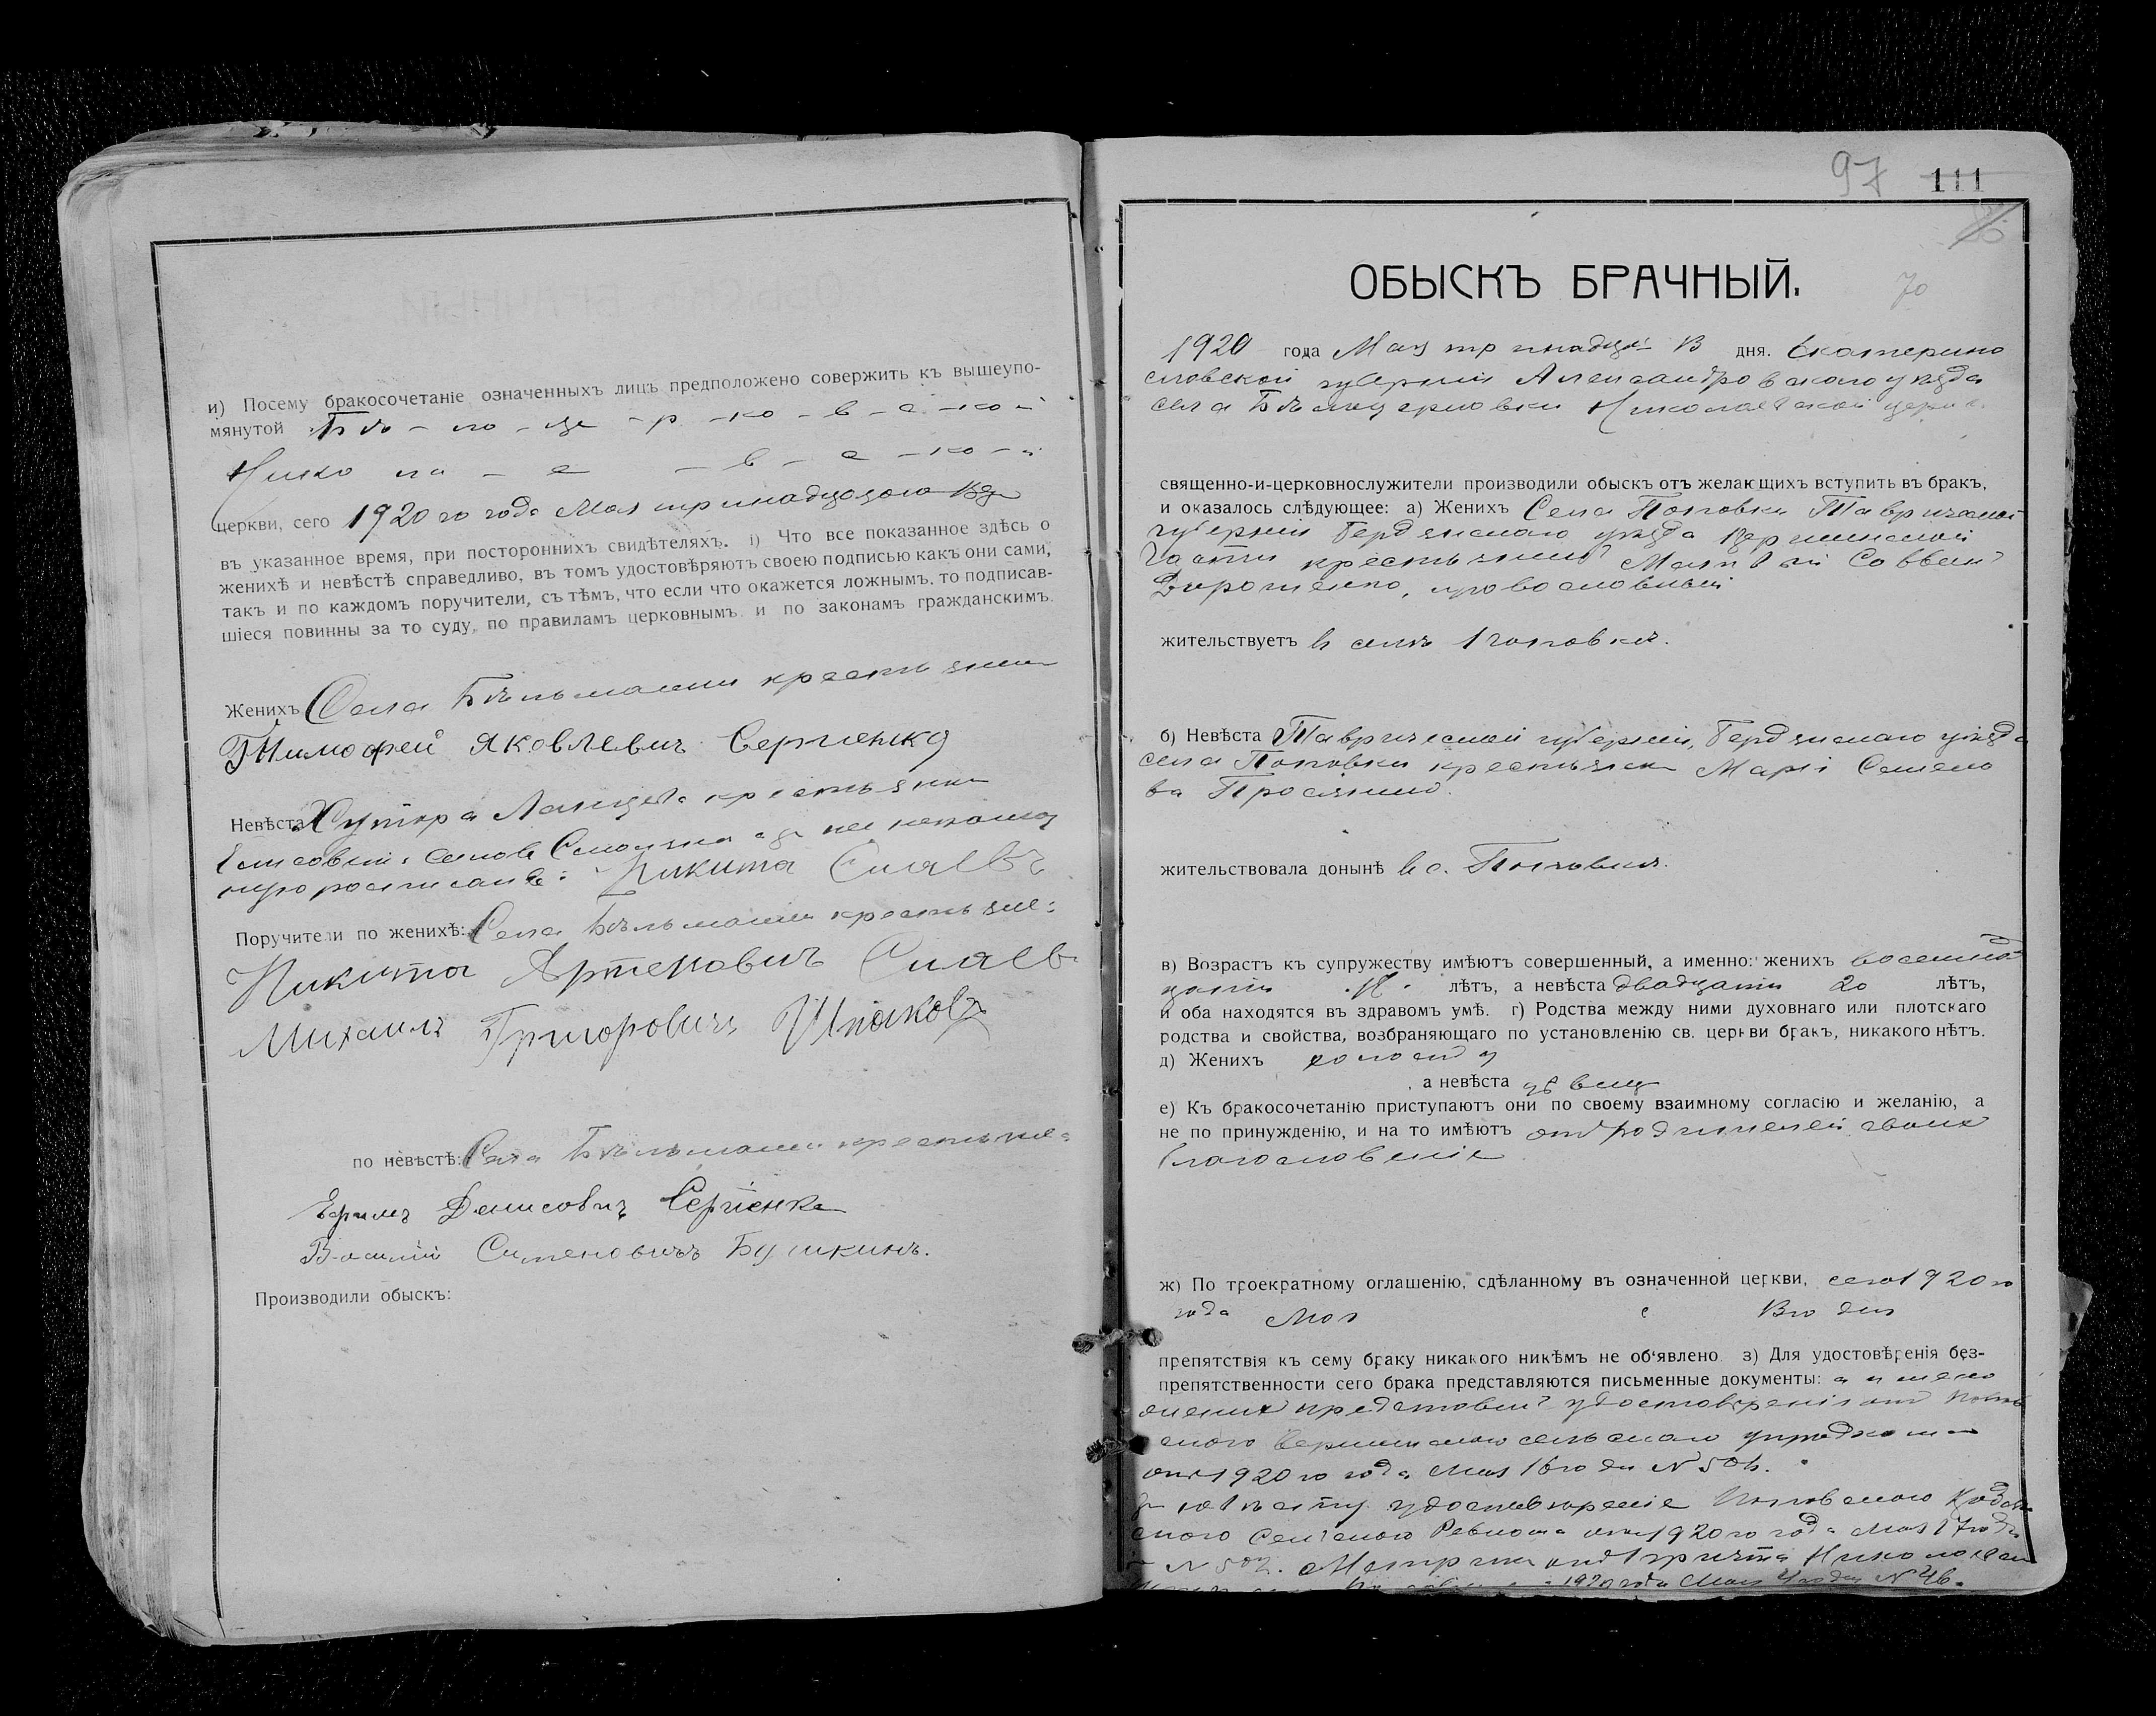 и) Посему бракосочетаніе означенныхъ лицъ предположено совержить къ вышеупо-
мянутой Бѣ - ло - це - р - ко - в - с - ко - й
Нико ла - е - в - с - ко - й
церкви, сего 1920 го года Мая тринадцатого 13 дня
въ указанное время, при постороннихъ свидѣтеляхъ. і) Что все показанное здѣсь о
женихѣ и невѣстѣ справедливо, въ томъ удостовѣряютъ своею подписью какъ они сами,
такъ и по каждомъ поручители, съ тѣмъ, что если что окажется ложнымъ, то подписав-
шіеся повинны за то суду, по правиламъ церковнымъ и по законамъ гражданскимъ.
Женихъ Села Бѣльманки крестьянин
Тимофей Яковлевич Сергиенко
Невѣста Хутора крестьянка
Никита Силаевъ
Поручители по женихѣ: Села Бѣльманки крестьяне:
Никита Артемович Силаев
Михаилъ Григорович Шпаковъ
по невѣстѣ: Села Бѣльманки крестьяне:
Ефимъ Денисович Сергіенко
Василій Семеновичъ Бушкинъ.
Производили обыскъ:
97 111
ОБЫСКЪ БРАЧНЫЙ.
70
1920 года Мая тринадцат 13 дня. Екатерино
славской губерніи Александровскаго уѣзда
села Бѣлоцерковки Николаевской церкв.
священно-и-церковнослужители производили обыскъ отъ желающихъ вступить въ бракъ,
и оказалось слѣдующее: а) Женихъ Села Поповки Таврической
губерніи Бердянскаго уѣзда
части крестьянинъ Матвѣй Саввин
православный
жительствуетъ в селѣ Поповкѣ.
б) Невѣста Таврической губерніи, Бердянскаго уѣзда
села Поповки крестьянка Марія Семено
ва
жительствовала донынѣ в с. Поповкѣ.
в) Возрастъ къ супружеству имѣютъ совершенный, а именно: женихъ восемнад
цати лѣтъ, а невѣста двадцати 20 лѣтъ,
и оба находятся въ здравомъ умѣ. г) Родства между ними духовнаго или плотскаго
родства и свойства, возбраняющаго по установленію св. церкви бракъ, никакого нѣтъ.
д) Женихъ холостой
а невѣста дѣвица
е) Къ бракосочетанію приступаютъ они по своему взаимному согласію и желанію, а
не по принужденію, и на то имѣютъ отъ родителей своихъ
благословеніе
ж) По троекратному оглашенію, сдѣланному въ означенной церкви, сего 1920 го
года Мая 13 го дня
препятствія къ сему браку никакого никѣмъ не об'явлено з) Для удостовѣренія без-
препятственности сего брака представляются письменные документы: а именно
женихъ представилъ удостовѣреніе от
сельскаго
от 1920 го года Мая 16 го дня N
удостовѣреніе Поповского
1920 го года Мая 17 го дня
N 507. Метрика от причта Николаевской
1920 года Мая 4 го дня N 46.